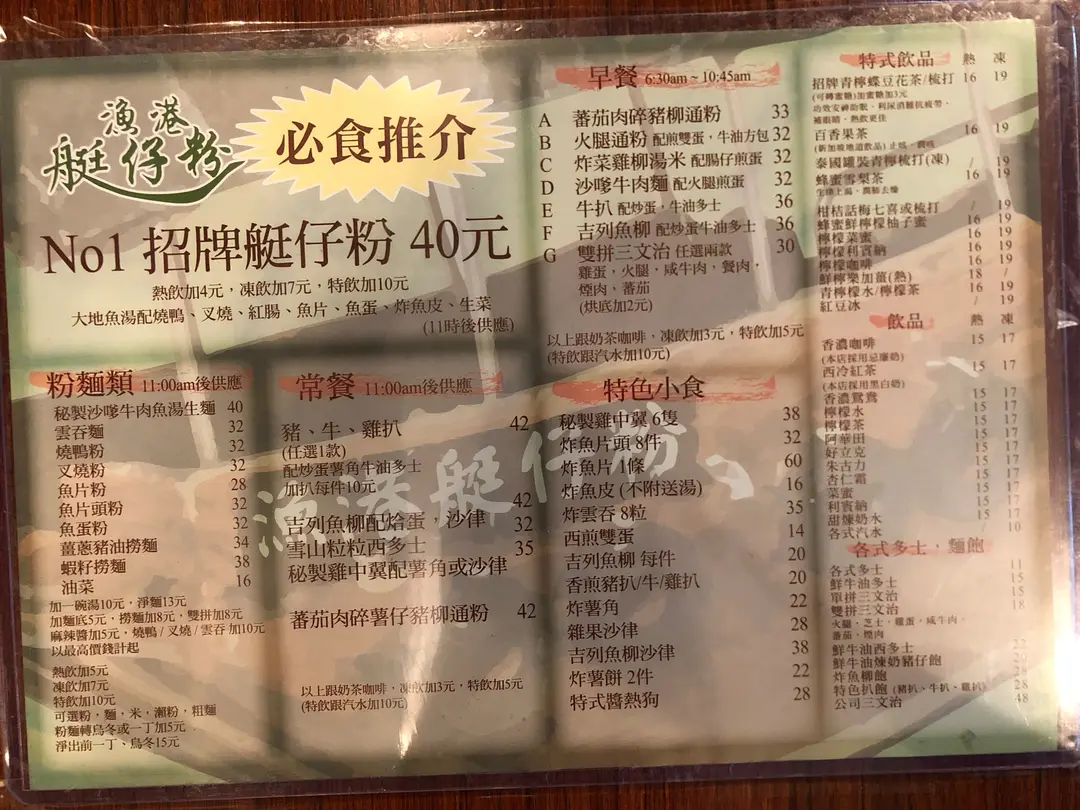 漁港
艇仔粉
必食推介
No1 招牌艇仔粉 40元
熱飲加4元，凍飲加7元，特飲加10元
大地魚湯配燒鴨、叉燒、紅腸、魚片、魚蛋、炸魚皮、生菜
(11時後供應)
粉麵類 11:00am後供應
秘製沙嗲牛肉魚湯生麵 40
雲吞麵 32
燒鴨粉 32
叉燒粉 32
魚片粉 28
魚片頭粉 32
魚蛋粉 32
薑蔥豬油撈麵 34
蝦籽撈麵 38
油菜 16
加一碗湯10元，淨麵13元
加麵底5元，撈麵加8元，雙拼加8元
麻辣醬加5元，燒鴨/叉燒/雲吞 加10元
以最高價錢計起
熱飲加5元
凍飲加7元
特飲加10元
可選粉，麵，米，瀨粉，粗麵
粉麵轉烏冬或一丁加5元
淨出前一丁、烏冬15元
常餐 11:00am後供應
豬、牛、雞扒 42
(任選1款)
配炒蛋薯角牛油多士
加扒每件10元
吉列魚柳配焓蛋 沙律 42
雪山粒粒西多士 32
秘製雞中翼配薯角或沙律 35
蕃茄肉碎薯仔豬柳通粉 42
以上跟奶茶咖啡，凍飲加3元，特飲加5元
(特飲跟汽水加10元)
早餐 6:30am ~ 10:45am
A 蕃茄肉碎豬柳通粉 33
B 火腿通粉 配煎雙蛋，牛油方包 32
C 炸菜雞柳湯米 配腸仔煎蛋 32
D 沙嗲牛肉麵 配火腿煎蛋 32
E 牛扒 配炒蛋，牛油多士 36
F 吉列魚柳 配炒蛋牛油多士 36
G 雙拼三文治 任選兩款 30
雞蛋，火腿，咸牛肉，餐肉，
煙肉，蕃茄
(烘底加2元)
以上跟奶茶咖啡，凍飲加3元，特飲加5元
(特飲跟汽水加10元)
特色小食
秘製雞中翼 6隻 38
炸魚片頭 8件 32
炸魚片 1條 60
炸魚皮 (不附送湯) 16
炸雲吞 8粒 35
西煎雙蛋 14
吉列魚柳 每件 20
香煎豬扒/牛/雞扒 20
炸薯角 22
雜果沙律 28
吉列魚柳沙律 38
炸薯餅 2件 22
特式醬熱狗 28
漁港艇仔粉
特式飲品 熱 凍
招牌青檸蝶豆花茶/梳打 16 19
(可轉蜜糖)加蜜糖加3元
功效安神助眠、利尿消腫抗疲勞、
補眼睛、熱飲更佳
百香果茶 16 19
(新加坡地道飲品) 止咳，潤喉
泰國罐裝青檸梳打(凍) / 19
蜂蜜雪梨茶 16 19
生津止渴、潤肺去燥
柑桔話梅七喜或梳打 / 19
蜂蜜鮮檸檬柚子蜜 16 19
檸檬菜蜜 16 19
檸檬利賓納 16 19
檸檬咖啡 16 19
鮮檸樂加薑(熱) 18 /
青檸檬水/檸檬茶 16 19
紅豆冰 / 19
飲品 熱 凍
香濃咖啡 15 17
(本店採用忌廉奶)
西冷紅茶 15 17
(本店採用黑白奶)
香濃鴛鴦 15 17
檸檬水 15 17
檸檬茶 15 17
阿華田 15 17
好立克 15 17
朱古力 15 17
杏仁霜 15 17
菜蜜 15 17
利賓納 15 17
甜煉奶水 15 17
各式汽水 / 10
各式多士，麵飽
各式多士 11
鮮牛油多士 15
單拼三文治 15
雙拼三文治 18
火腿，芝士，雞蛋，咸牛肉，
蕃茄，煙肉
鮮牛油西多士 22
鮮牛油煉奶豬仔飽
炸魚柳飽
特色扒飽 (豬扒、牛扒、雞扒) 28
公司三文治 48